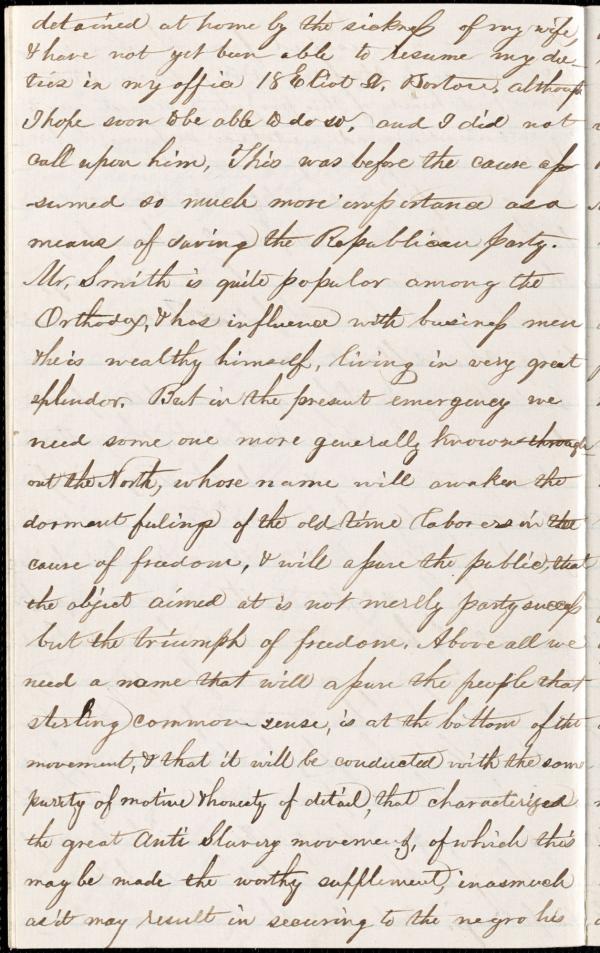 detained at home by the sickness of my wife,
& have not yet been able to resume my du-
ties in my office 18 Eliot St. Boston, although
I hope soon to be able to do so, and I did not
call upon him, This was before the cause as-
sumed so much more importance as a
means of saving the Republican party.
Mr. Smith is quite popular among the
Orthodox, & has influence with business men
& he is wealthy himself, living in very great
splendor. But in the present emergency we
need some one more generally known through
out the North, whose name will awaken the
dormant feelings of the old time laborers in the
cause of freedom, & will assure the public, that
the object aimed at is not merely party success
but the triumph of freedom. Above all we
need a name that will assure the people that
sterling common sense, is at the bottom of the
movement, & that it will be conducted with the same
purity of motive & honesty of detail, that characterized
the great Anti Slavery movement, of which this
may be made the worthy supplement, inasmuch
as it may result in securing to the negro his